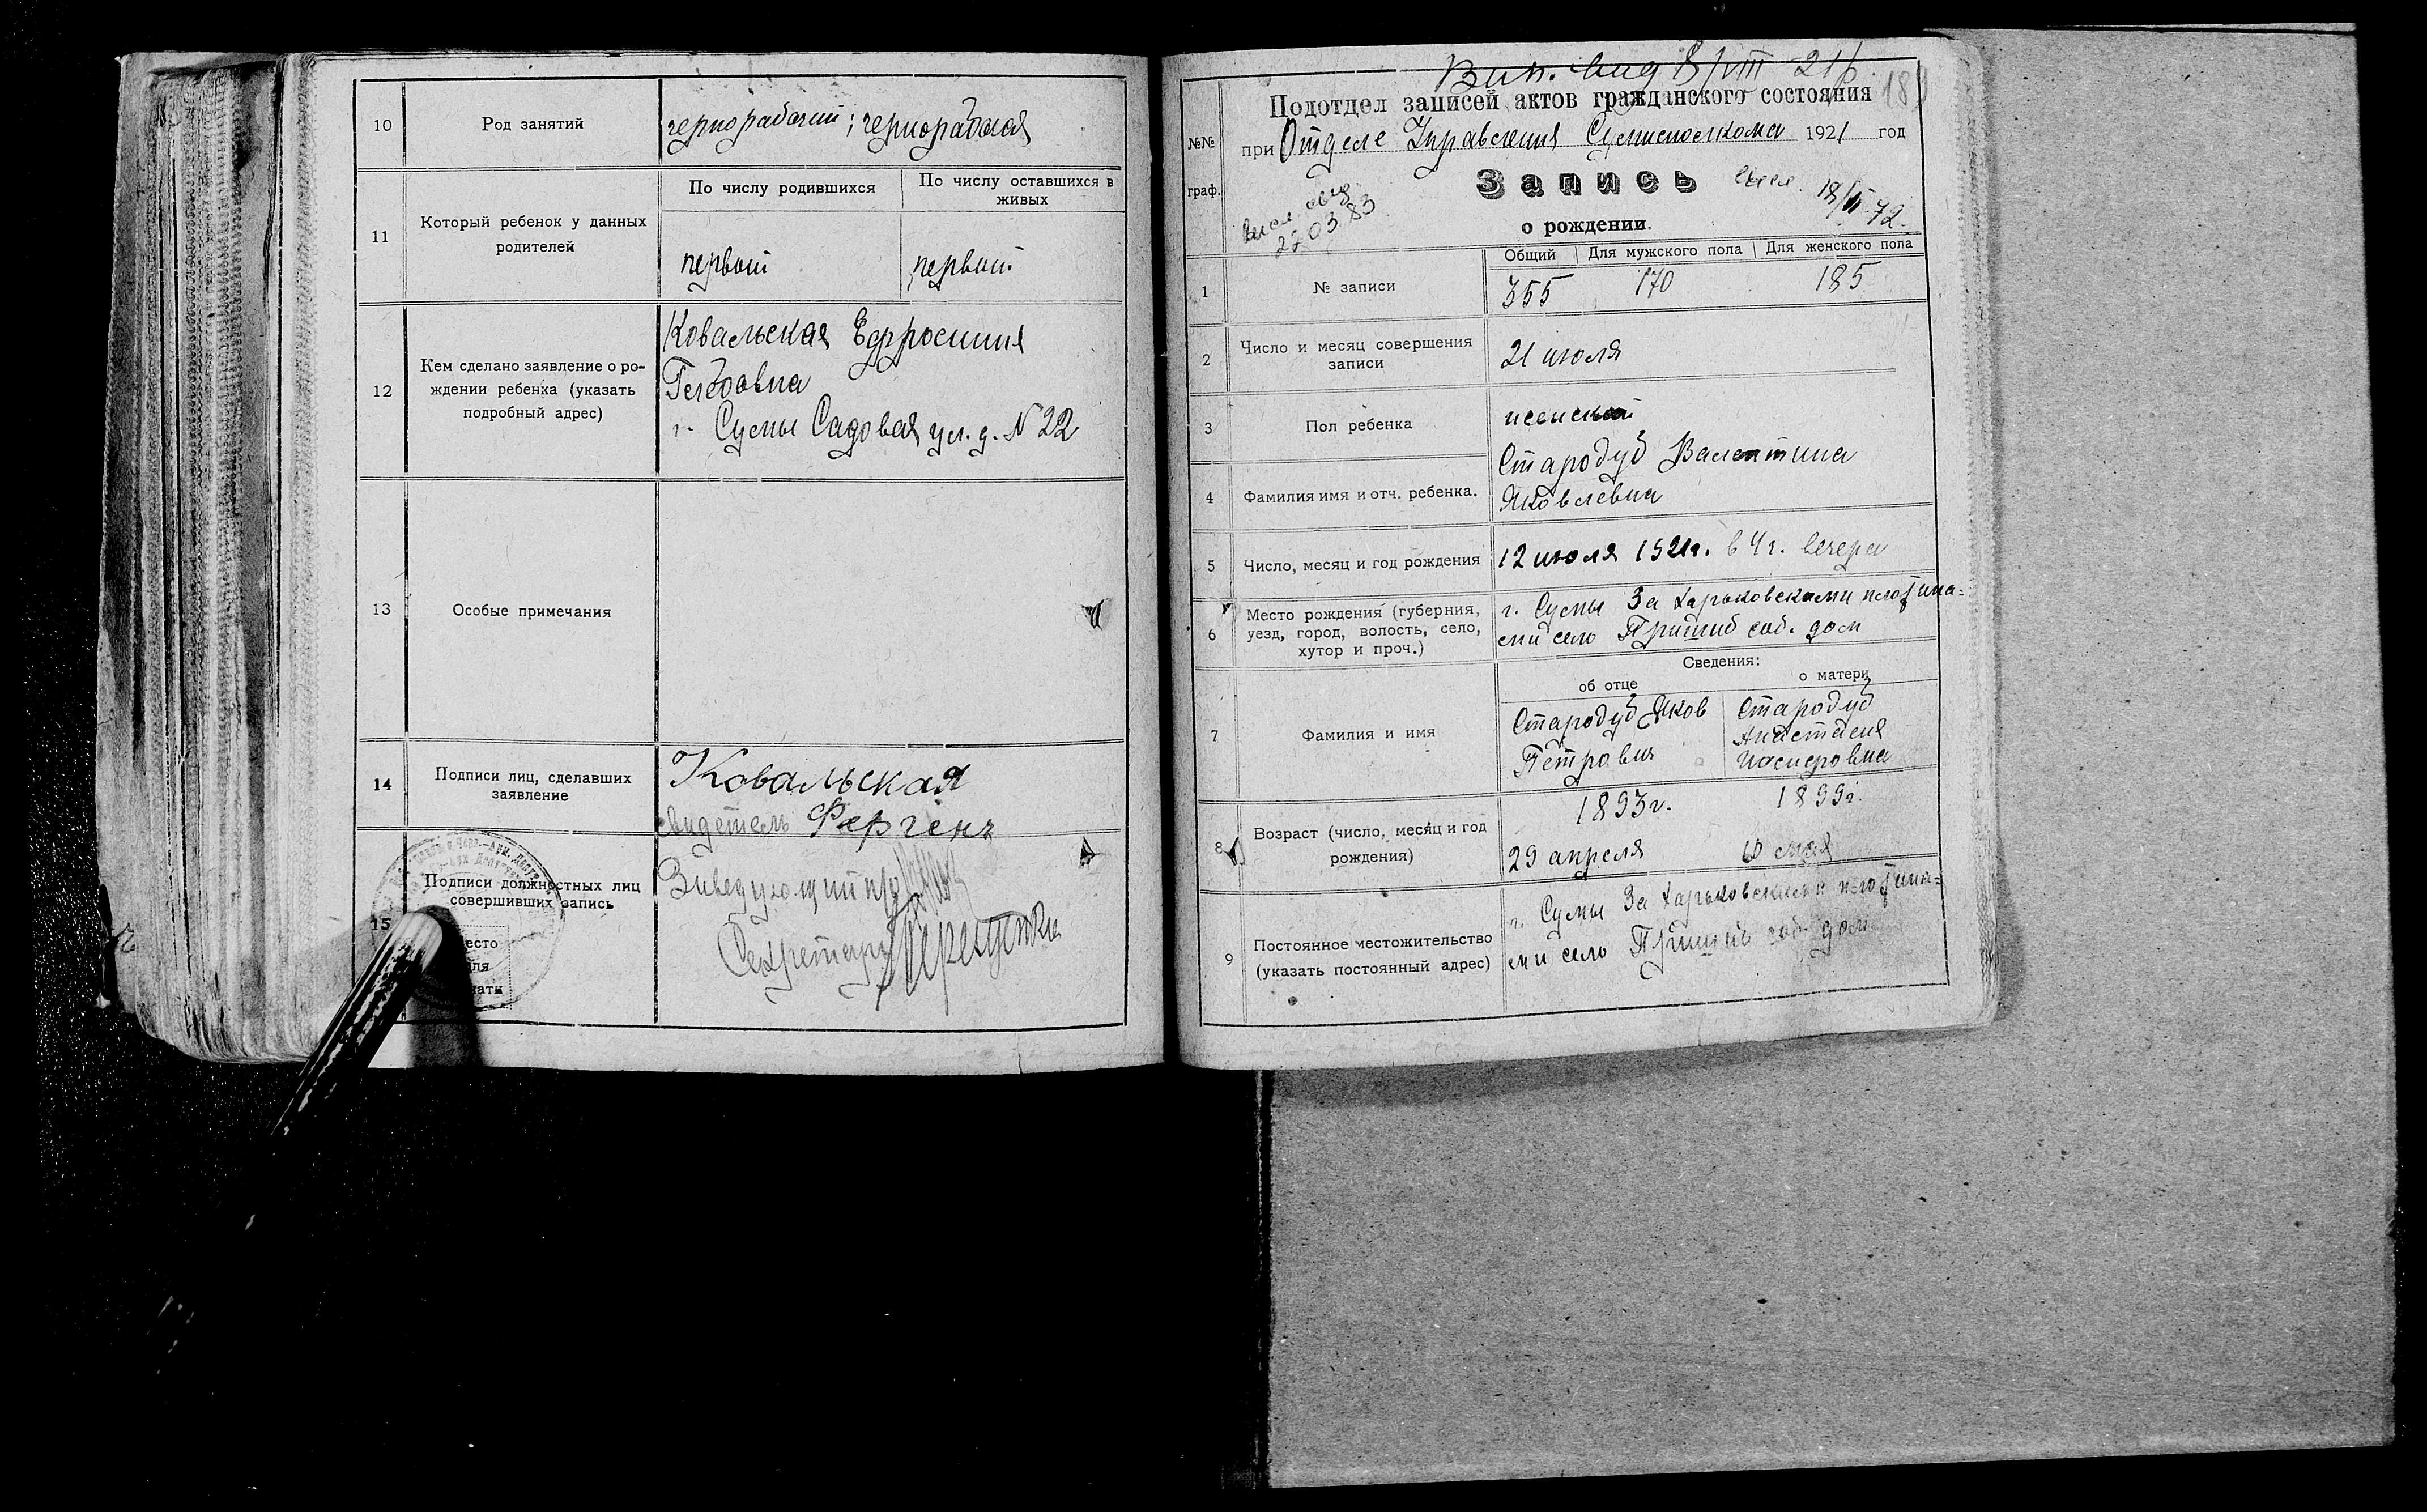 10
Род занятий
чернорабочий; чернорабочая
11
Который ребенок у данных
родителей
По числу родившихся
По числу оставшихся в
живых
первый
первый
12
Кем сделано заявление о ро-
ждении ребенка (указать
подробный адрес)
Ковальская Ефросиния
Глебовна
г. Сумы Садовая ул. д. N 22
13
Особые примечания
14
Подписи лиц, сделавших
заявление
Ковальская
свидетель
15
Подписи должностных лиц
совершивших запись
Заведующий
Секретарь
Подотдел записей актов гражданского состояния
№№
граф.
при Отделе Управления 1921 год
Запись
18/VI-72.
22 03 83
о рождении.
Общий
Для мужского пола
Для женского пола
1
№ записи
355
170
185
2
Число и месяц совершения
записи
21 июля
3
Пол ребенка
женский
4
Фамилия имя и отч. ребенка.
Стародуб Валентина
Яковлевна
5
Число, месяц и год рождения
12 июля 1921г. в 4 ч. вечера
6
Место рождения (губерния,
уезд, город, волость, село,
хутор и проч.)
г. Сумы За Харьковскими плотина-
ми село Пришиб соб. дом
Сведения:
об отце
о матери
7
Фамилия и имя
Стародуб Яков
Петрович
Стародуб
Анастасия
8
Возраст (число, месяц и год
рождения)
1893г.
29 апреля
1899г.
мая
9
Постоянное местожительство
(указать постоянный адрес)
г. Сумы За Харьковскими плотина-
ми село Пришиб соб. дом